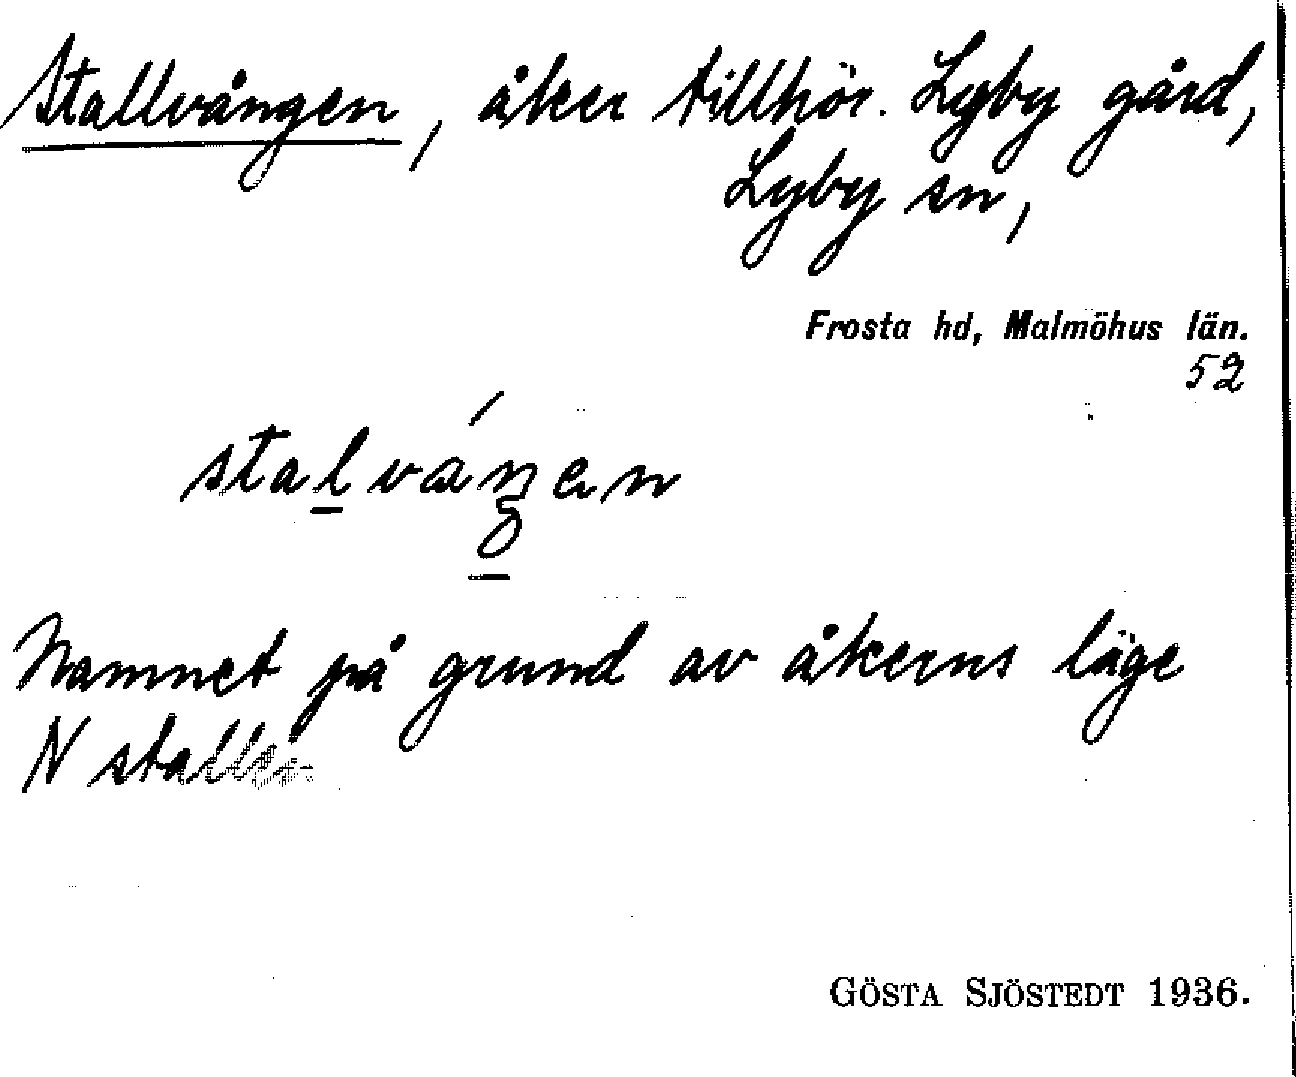 Stallvången, åker tillhör. Lyby gård,
Lyby sn,
Frosta hd, Malmöhus län.
52
stalváŋen
Namnet på grund av åkerns läge
N stallen
GÖSTA SJÖSTEDT 1936.